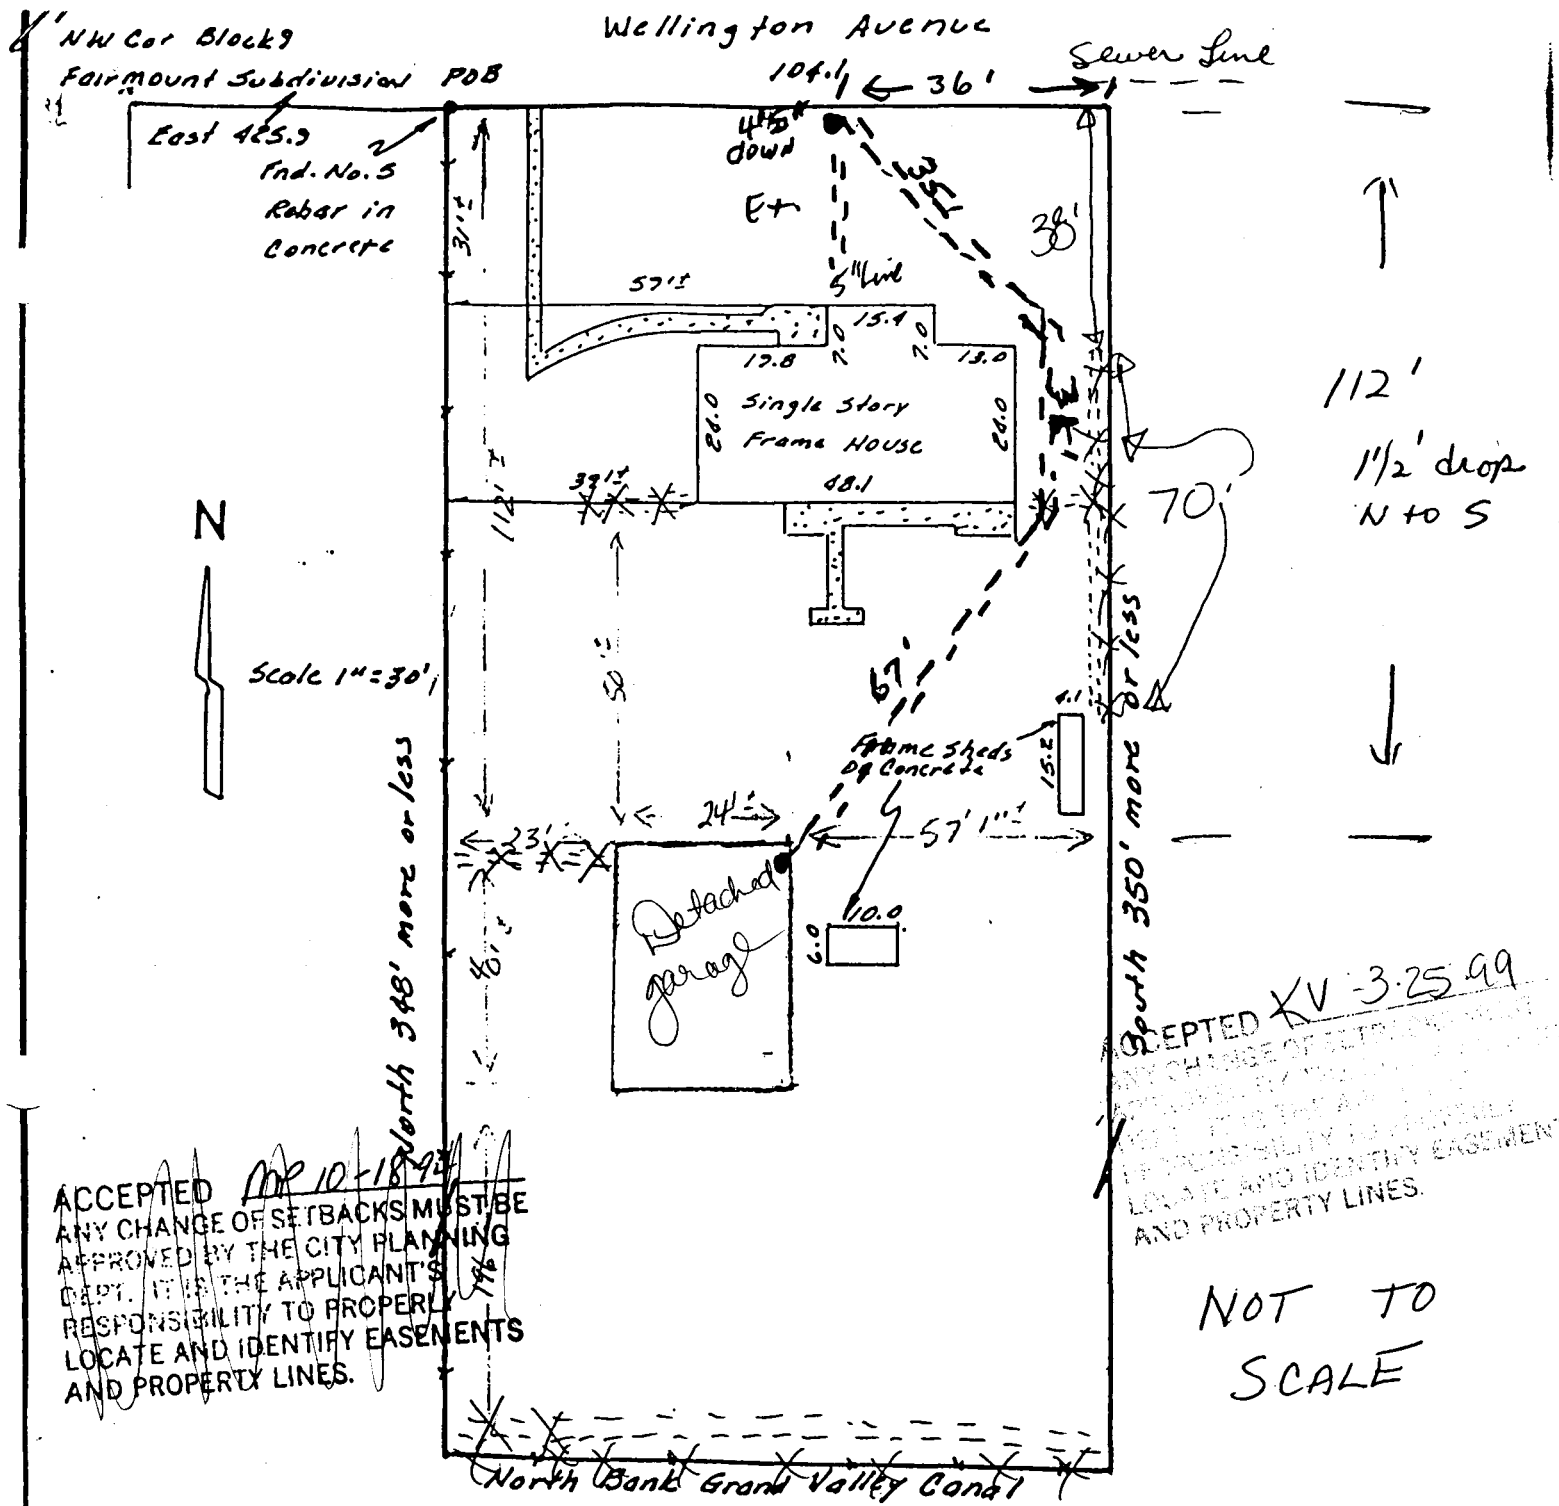 NW Cor Block 9
Fairmount Subdivision
East 425.9
Fnd. No. 5
Rebar in
Concrete
POB
Wellington Avenue
104.1
36'
Sewer Line
down
E+
5" line
35'
38'
31'±
57'±
15.4
7.0
7.0
17.8
13.0
24.0
Single Story
Frame House
24.0
48.1
112'±
50'±
70'
112'
1 1/2' drop
N to S
N
Scale 1" = 30'
67'
Frame Sheds
On Concrete
4.1
15.2
24'±
57'1"±
23'
Detached
garage
10.0
6.0
40'±
196'
North 348' more or less
South 350' more or less
ACCEPTED KV 3-25-99
ANY CHANGE OF SETBACKS MUST
LOCATE AND IDENTIFY EASEMEN
AND PROPERTY LINES.
ACCEPTED 10-18-94
ANY CHANGE OF SETBACKS MUST BE
APPROVED BY THE CITY PLANNING
DEPT. IT IS THE APPLICANT'S
RESPONSIBILITY TO PROPERLY
LOCATE AND IDENTIFY EASEMENTS
AND PROPERTY LINES.
NOT TO
SCALE
North Bank Grand Valley Canal